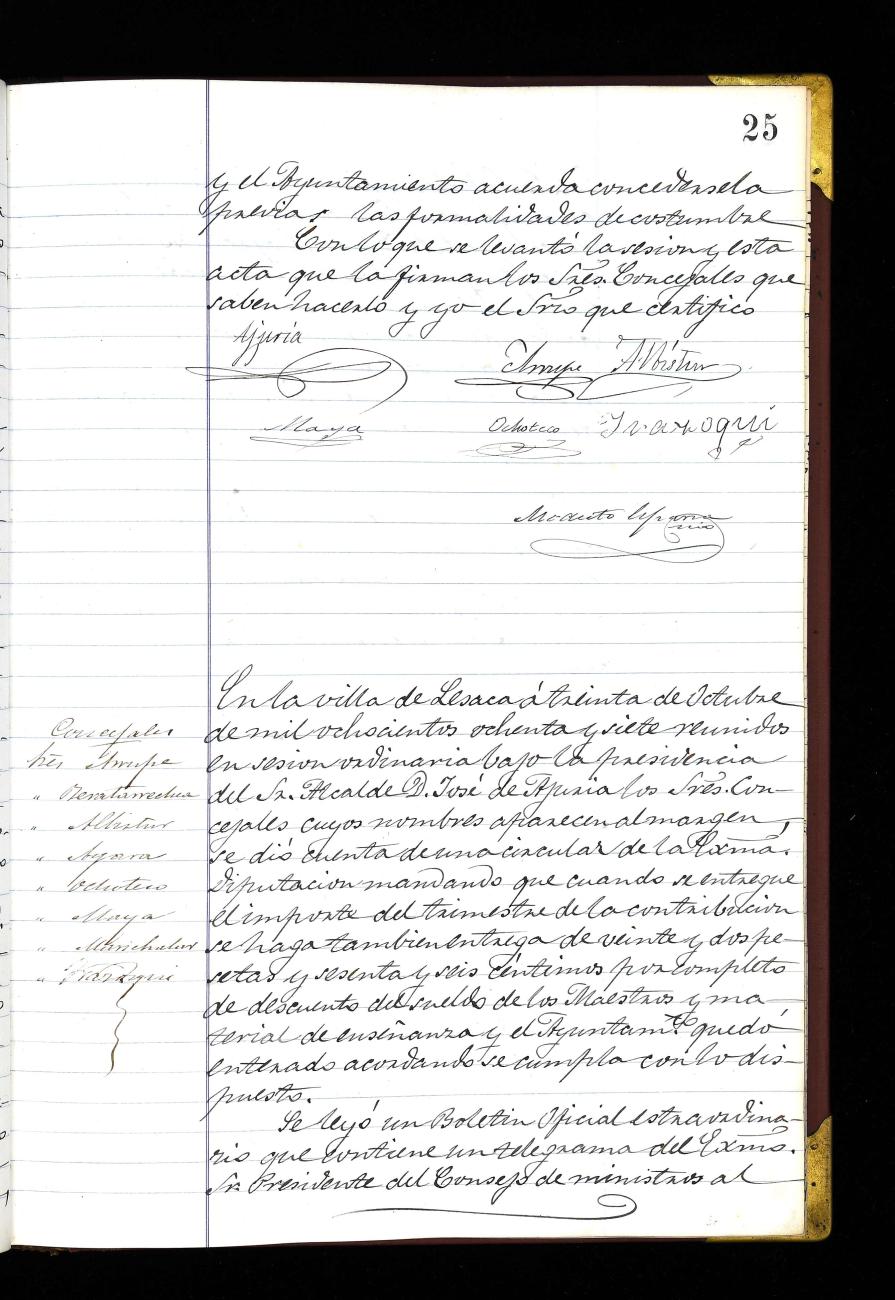 25
y el Ayuntamiento acuerda concedersela
previas las formalidades de costumbre
Con lo que se levantó la sesion y esta
acta que la firman los Sres. Concejales que
saben hacerlo y yo el Srio que certifico
Ajuria
Irurpe Albistur
Maya Ochoteco Iraroqui
Modesto
En la villa de Lesaca á treinta de Octubre
de mil ochocientos ochenta y siete reunidos
en sesion ordinaria bajo la presidencia
del Sr. Alcalde D. José de Ajuria los Sres. Con-
cejales cuyos nombres aparecen al margen,
se dió cuenta de una circular de la Exma.
Diputacion mandando que cuando se entregue
el importe del trimestre de la contribucion
se haga tambien entrega de veinte y dos pe-
setas y sesenta y seis céntimos por completo
de descuento del sueldo de los Maestros y ma-
terial de enseñanza y el Ayuntamto. quedó
enterado acordando se cumpla con lo dis-
puesto.
Se leyó un Boletin Oficial estraordina-
rio que contiene un telegrama del Exmo.
Sr. Presidente del Consejo de ministros al
Concejales
" Albistur
" Ochoteco
" Maya
" Marichalar